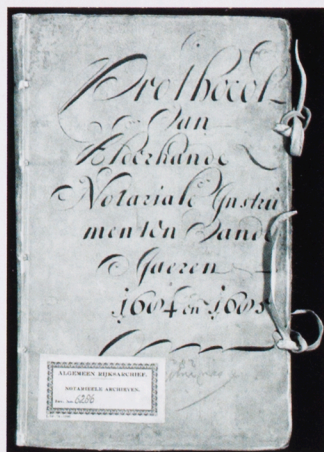 Prothocol
Van
Alderhande
Notariale Instru
menten Vande
Jaeren
1604 en 1605
ALGEMEEN RIJKSARCHIEF.
NOTARIEELE ARCHIEVEN.
Inv. No. 6286